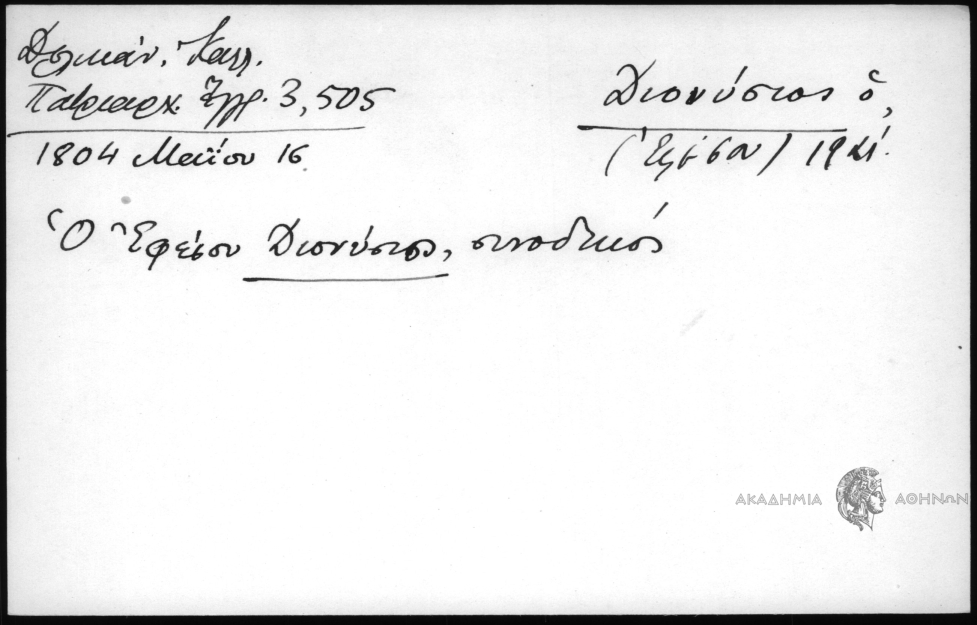 Δελικάν. Καλλ.
Πατριαρχ. Ἔγγρ. 3, 505
1804 Μαΐου 16
Διονύσιος ὁ,
(Ἐφέσου)
Ὁ Ἐφέσου Διονύσιος, συνοδικός
ΑΚΑΔΗΜΙΑ ΑΘΗΝΩΝ